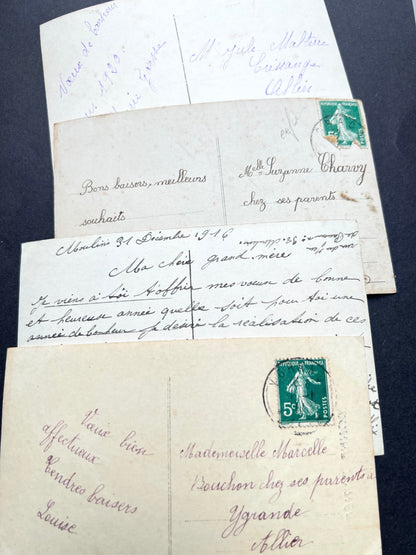 Vœux de bonheur
1920
M
Cressanges
Allier
Bons baisers, meilleurs
souhaits
Melle Suzanne Charvy
chez ses parents
REPUBLIQUE FRANÇAISE
5c
POSTES
Moulins 31 Décembre 1916
Ma chère grand mère
Je viens à toi t'offrir mes vœux de bonne
et heureuse année quelle soit pour toi une
année de bonheur je désire la réalisation de ces
REPUBLIQUE FRANÇAISE
5c
POSTES
Vœux bien
affectueux
Tendres baisers
Louise
Mademoiselle Marcelle
Bouchon chez ses parents à
Ygrande
Allier